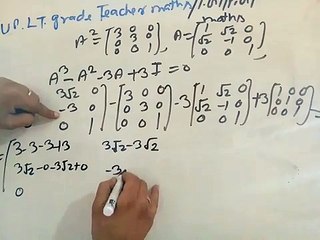 UP. LT. grade Teacher maths
maths
A² = [3 0 0 0 3 0 0 0 1], A = [1 √2 0 √2 -1 0 0 0 1]
A³ - A² - 3A + 3I = 0
3√2 0 - [3 0 0 - 3 [1 √2 0 + 3 [1 0 0
-3 0 0 3 0 √2 -1 0 0 1 0
0 1 0 0 1] 0 0 1] 0 0 1] =
3-3-3+3 3√2-3√2
3√2-0-3√2+0 -3
0